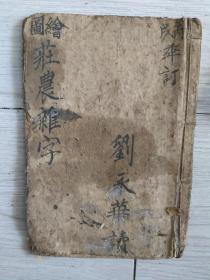 繪圖
莊農雜字
劉永華讀
年訂